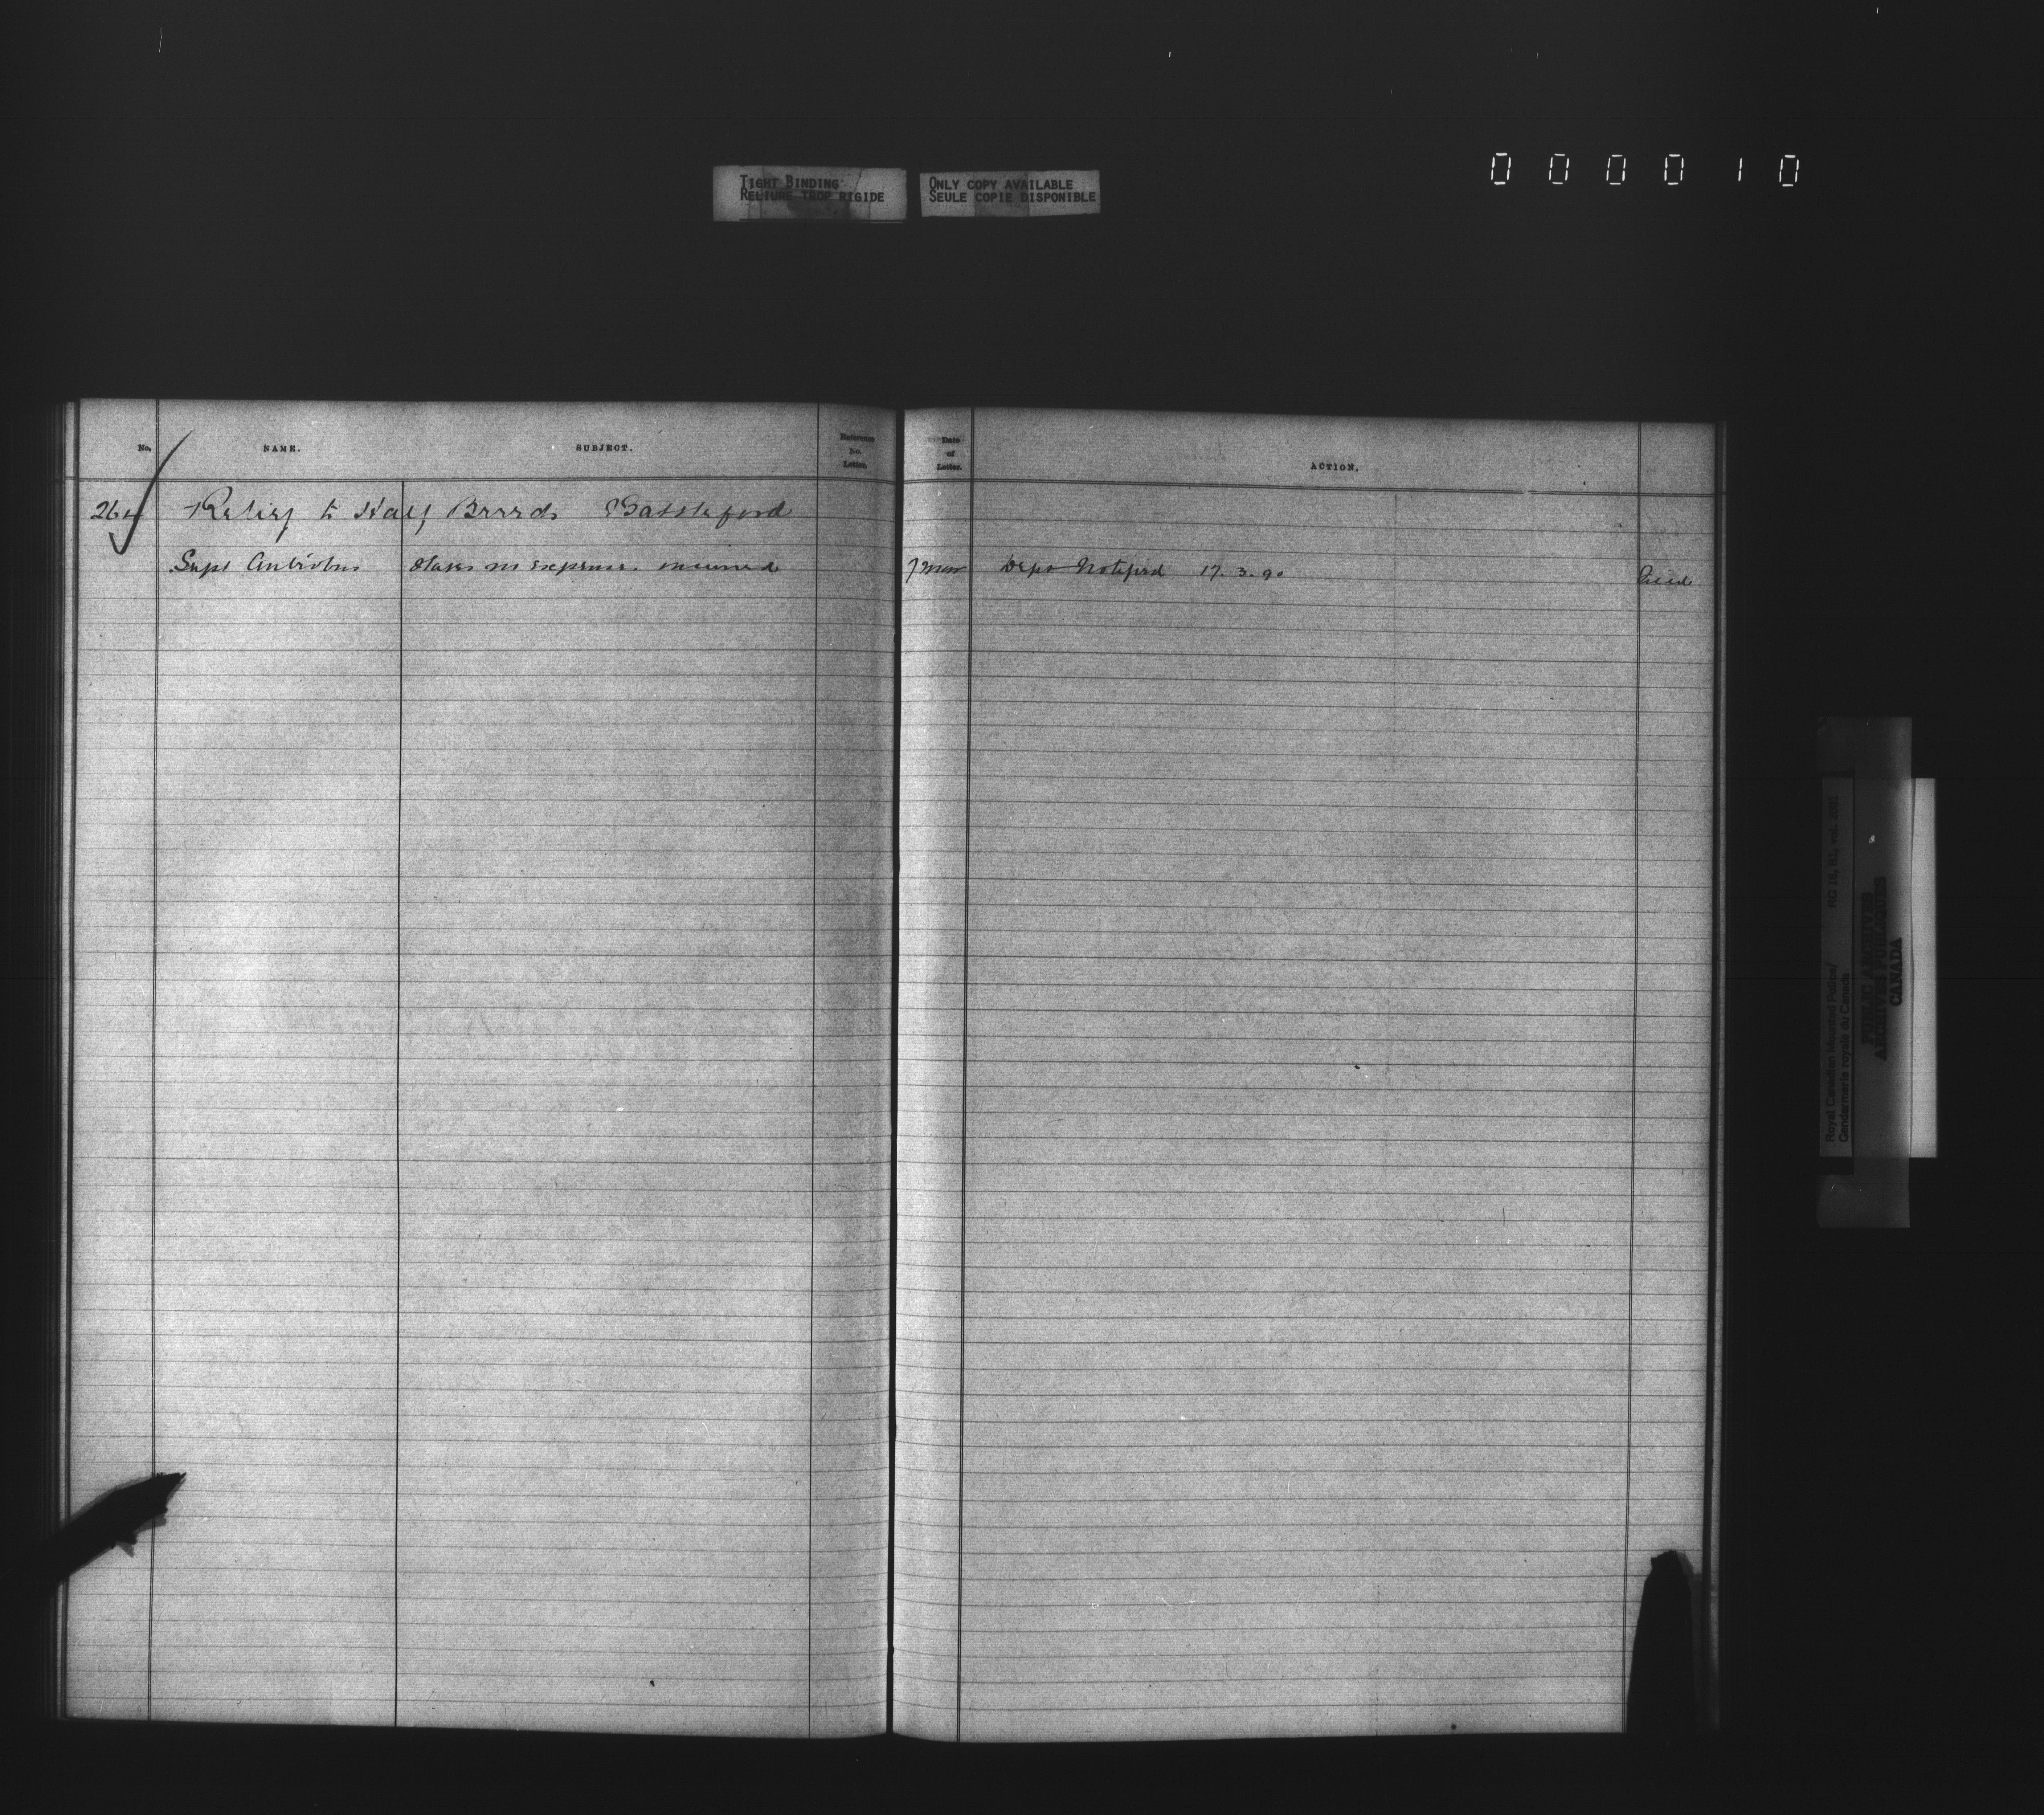 000010
TIGHT BINDING
RELIURE TROP RIGIDE
ONLY COPY AVAILABLE
SEULE COPIE DISPONIBLE
No. NAME. SUBJECT. Reference No. Letter. Date of Letter. ACTION.
Relief to Half Breeds Battleford
Supt Antrobus States no expense incurred 7 Mar Dept Notified 17.3.90
Royal Canadian Mounted Police/ RG 18, B1, vol.
Gendarmerie royale du Canada
PUBLIC ARCHIVES
ARCHIVES PUBLIQUES
CANADA